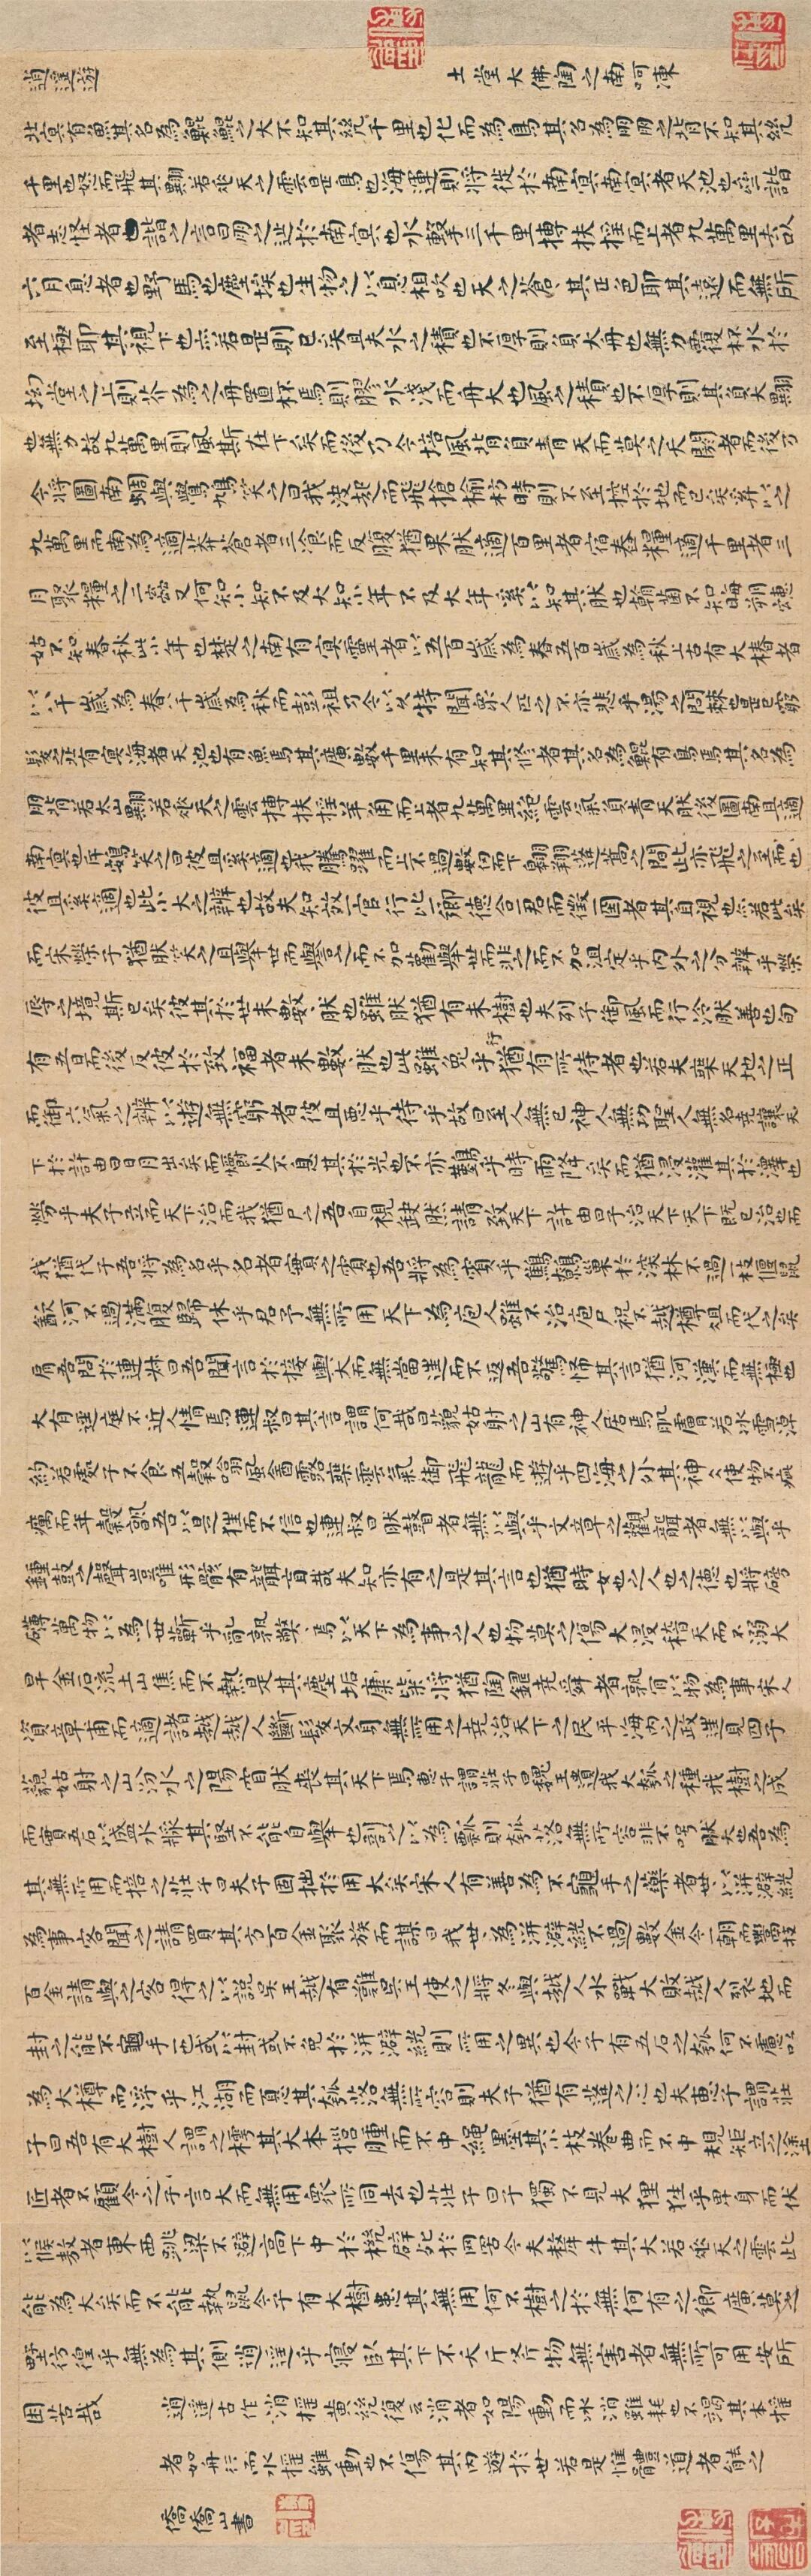 逍遙遊 土堂大佛陶之南呵凍
北㝠有魚其名為鯤鯤之大不知其幾千里也化而為鳥其名為鵬鵬之背不知其幾
千里也怒而飛其翼若垂天之雲是鳥也海運則將徙於南㝠南㝠者天池也齊諧
者志怪者也諧之言曰鵬之徙於南㝠也水擊三千里摶扶搖而上者九萬里去以
六月息者也野馬也塵埃也生物之以息相吹也天之蒼蒼其正色耶其遠而無所
至極耶其視下也亦若是則已矣且夫水之積也不厚則負大舟也無力覆杯水於
坳堂之上則芥為之舟置杯焉則膠水淺而舟大也風之積也不厚則其負大翼
也無力故九萬里則風斯在下矣而後乃今培風背負青天而莫之夭閼者而後乃
今將圖南蜩與鷽鳩笑之曰我決起而飛搶榆枋時則不至控於地而已矣奚以之
九萬里而南為適莽蒼者三飡而反腹猶果肰適百里者宿舂糧適千里者三
月聚糧之二蟲又何知小知不及大知小年不及大年奚以知其肰也朝菌不知晦朔蟪
蛄不知春秋此小年也楚之南有冥靈者以五百歲為春五百歲為秋上古有大椿者
以八千歲為春八千歲為秋而彭祖乃今以久特聞衆人匹之不亦悲乎湯之問棘也是已窮
髮之北有㝠海者天池也有魚焉其廣數千里未有知其修者其名為鯤有鳥焉其名為
鵬背若太山翼若垂天之雲摶扶搖羊角而上者九萬里絕雲氣負青天肰後圖南且適
南㝠也斥鷃笑之曰彼且奚適也我騰躍而上不過數仞而下翱翔蓬蒿之間此亦飛之至也而
彼且奚適也此小大之辨也故夫知效一官行比一鄉德合一君而徵一國者其自視也亦若此矣
而宋榮子猶肰笑之且舉世而譽之而不加勸舉世而非之而不加沮定乎內外之分辨乎榮
辱之境斯已矣彼其於世未數數肰也雖肰猶有未樹也夫列子御風而行泠肰善也旬
有五日而後反彼於致福者未數數肰也此雖免乎行猶有所待者也若夫乘天地之正
而御六氣之辨以遊無窮者彼且惡乎待乎故曰至人無己神人無功聖人無名堯讓天
下於許由曰日月出矣而爝火不息其於光也不亦難乎時雨降矣而猶浸灌其於澤也
勞乎夫子立而天下治而我猶尸之吾自視缺然請致天下許由曰子治天下天下既已治也而
我猶代子吾將為名乎名者實之賓也吾將為賓乎鷦鷯巢於深林不過一枝偃鼠
飲河不過滿腹歸休乎君予無所用天下為庖人雖不治庖尸祝不越樽俎而代之矣
肩吾問於連叔曰吾聞言於接輿大而無當往而不返吾驚怖其言猶河漢而無極也
大有逕庭不近人情焉連叔曰其言謂何哉曰藐姑射之山有神人居焉肌膚若冰雪淖
約若處子不食五穀吸風飲露乘雲氣御飛龍而遊乎四海之外其神凝使物不疵
癘而年穀熟吾以是狂而不信也連叔曰肰瞽者無以與乎文章之觀聾者無以與乎
鍾鼓之聲豈唯形骸有聾盲哉夫知亦有之是其言也猶時女也之人也之德也將磅
礡萬物以為一世蘄乎亂孰獘獘焉以天下為事之人也物莫之傷大浸稽天而不溺大
旱金石流土山焦而不熱是其塵垢粃糠將猶陶鑄堯舜者孰肯以物為事宋人
資章甫而適諸越越人斷髮文身無所用之堯治天下之民平海內之政往見四子
藐姑射之山汾水之陽窅肰喪其天下焉惠子謂莊子曰魏王遺我大瓠之種我樹之成
而實五石以盛水漿其堅不能自舉也剖之以為瓢則瓠落無所容非不呺肰大也吾為
其無用而掊之莊子曰夫子固拙於用大矣宋人有善為不龜手之藥者世世以洴澼絖
為事客聞之請買其方百金聚族而謀曰我世世為洴澼絖不過數金今一朝而鬻技
百金請與之客得之以說吳王越有難吳王使之將冬與越人水戰大敗越人裂地而
封之能不龜手一也或以封或不免於洴澼絖則所用之異也今子有五石之瓠何不慮以
為大樽而浮乎江湖而憂其瓠落無所容則夫子猶有蓬之心也夫惠子謂莊
子曰吾有大樹人謂之樗其大本擁腫而不中繩墨其小枝卷曲而不中規矩立之塗
匠者不顧今子之言大而無用衆所同去也莊子曰子獨不見夫狸狌乎卑身而伏
以候敖者東西跳梁不避高下中於機辟死於罔罟今夫斄牛其大若垂天之雲此
能為大矣而不能執鼠今子有大樹患其無用何不樹之於無何有之鄉廣莫之
野彷徨乎無為其側逍遙乎寢臥其下不夭斤斧物無害者無所可用安所
困苦哉 逍遙古作消搖黃幾復云消者如陽動而冰消雖耗也不竭其本搖
者如舟行而水搖雖動也不傷其內遊於世若是惟體道者能之
僑僑山書